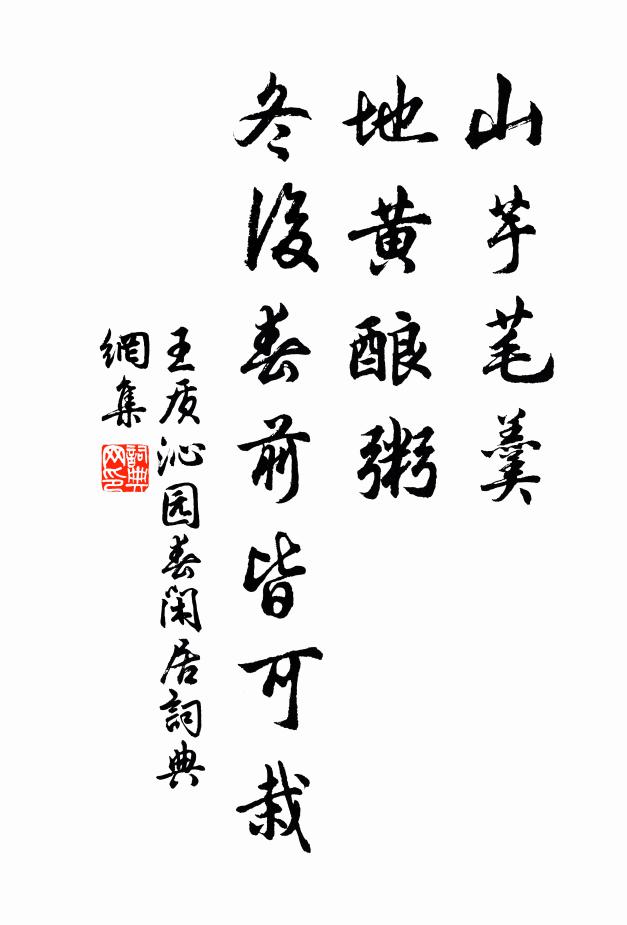 山芋芼羹
地黄酿粥
冬後春前皆可栽
王质沁园春闲居詞典
網集
詞典网印